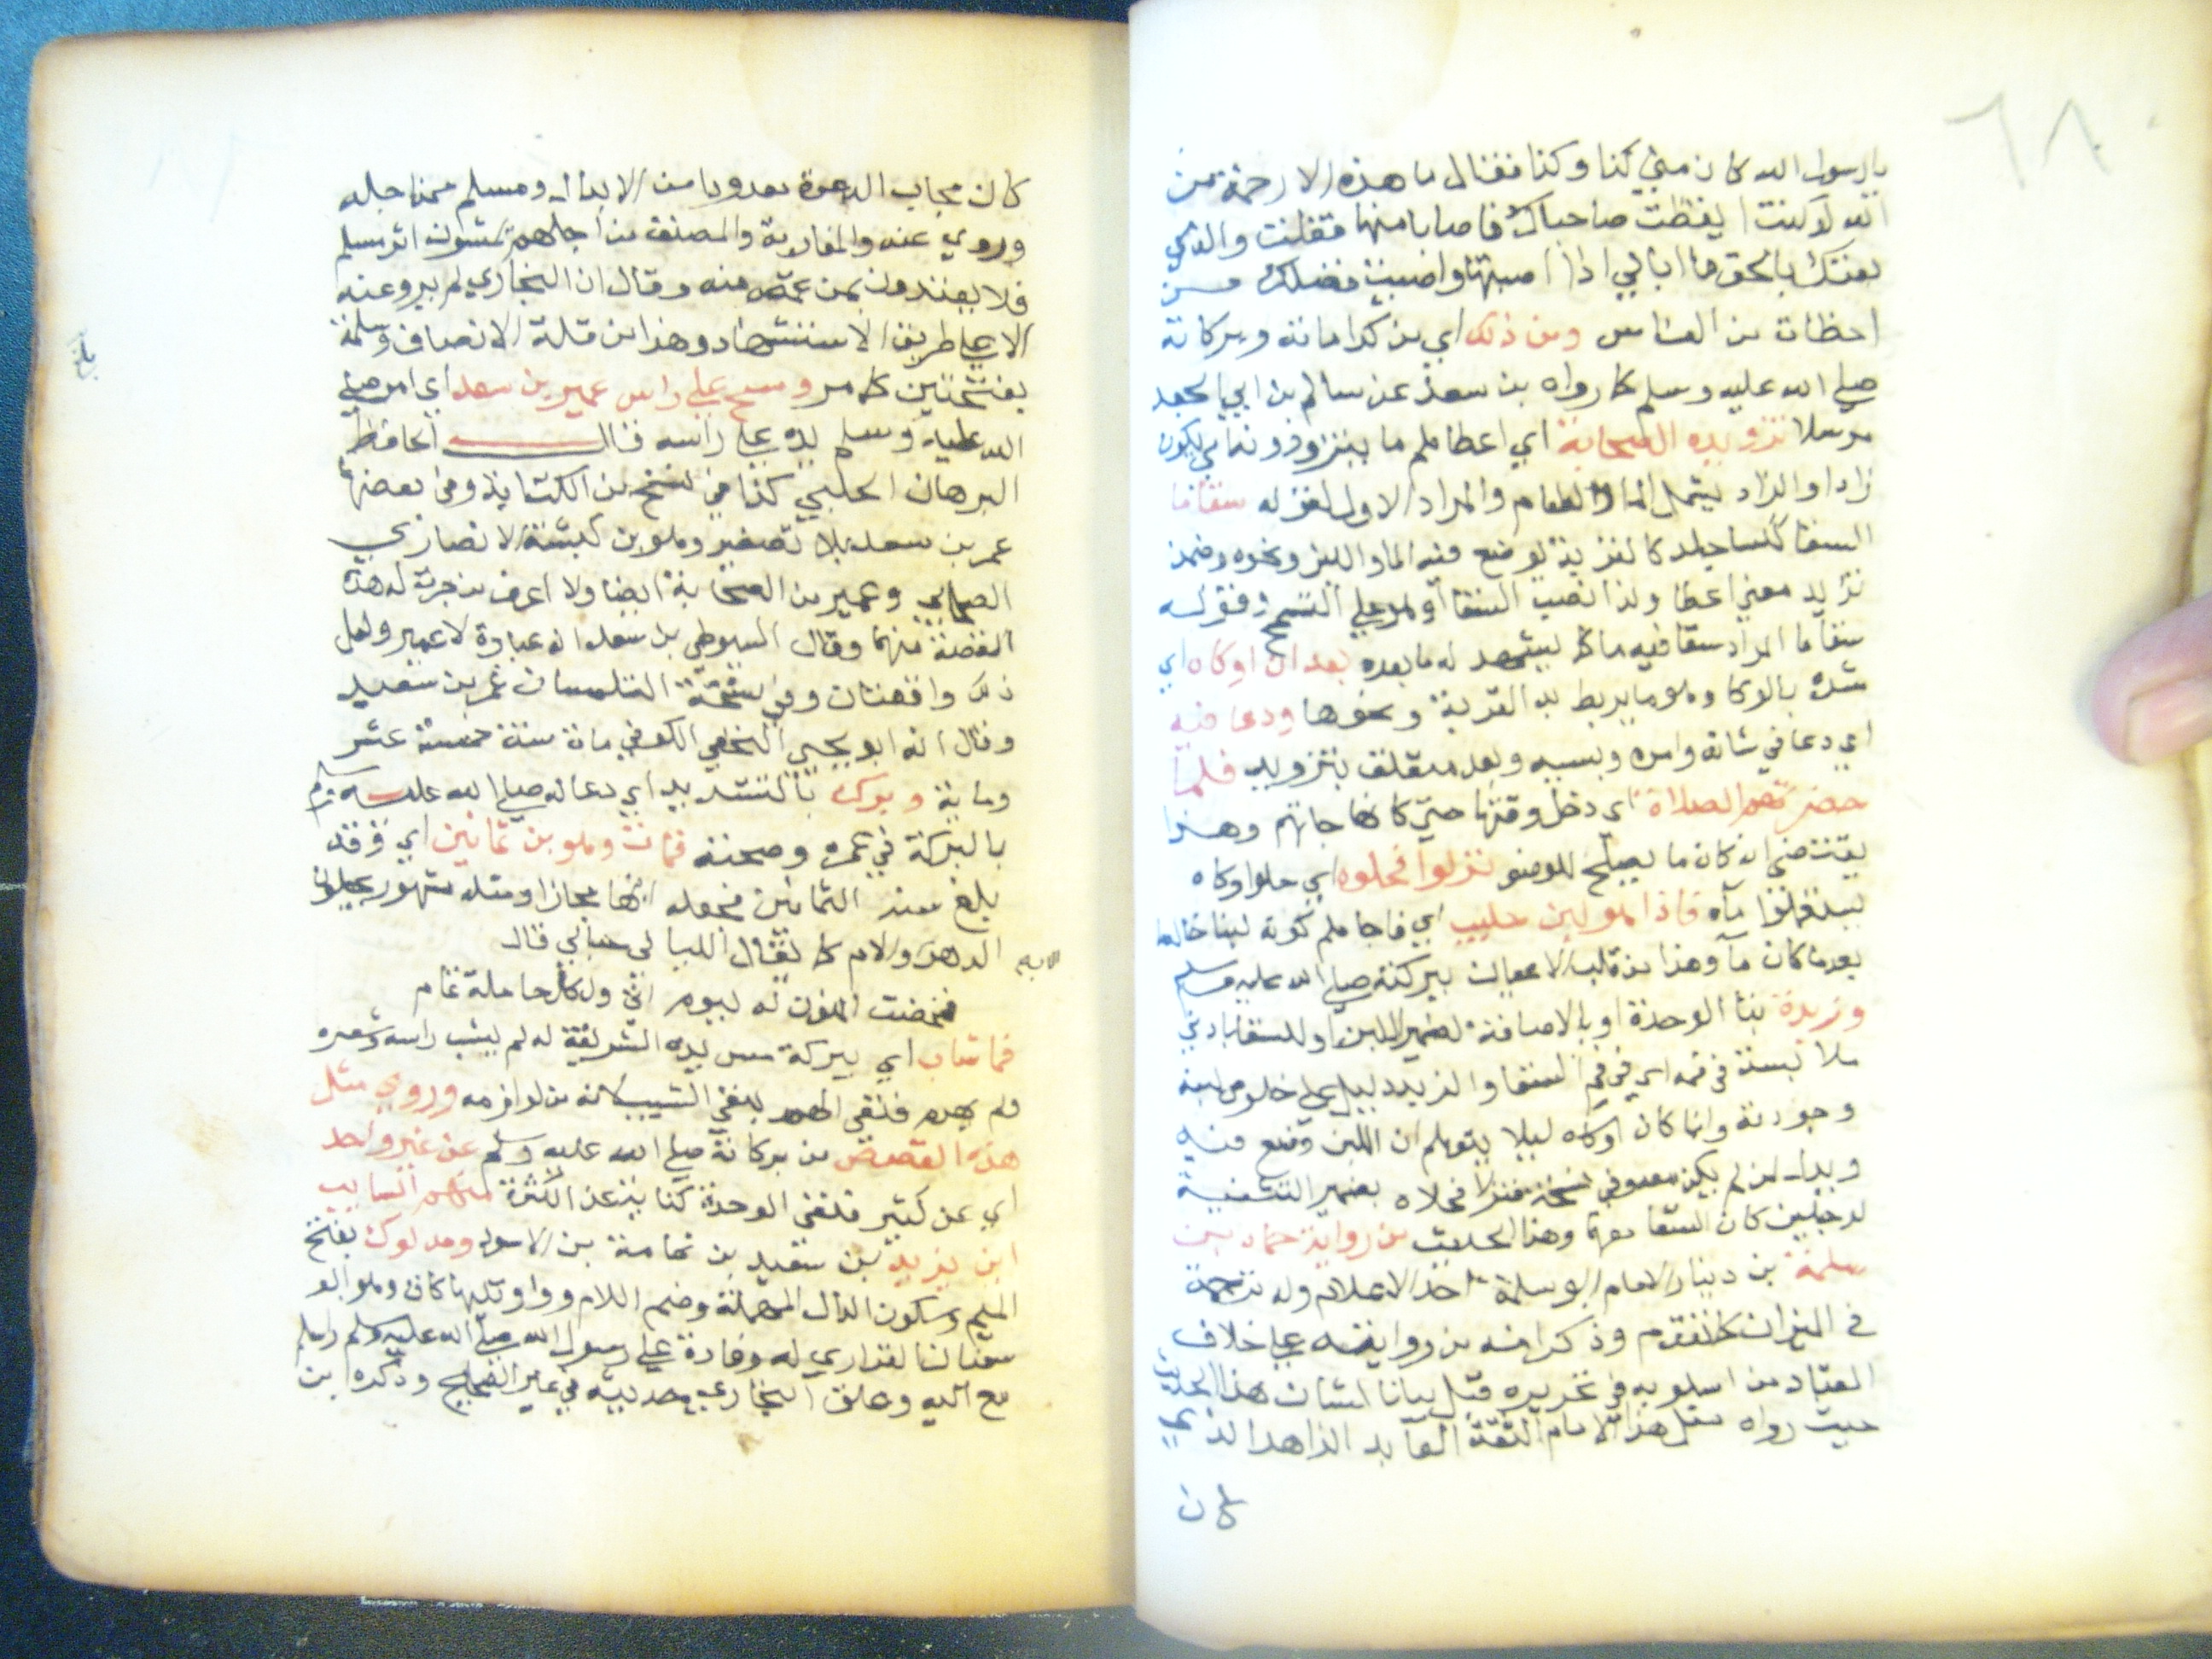 ٦٨
يا رسول الله كان مني كذا وكذا فقال ما هذه الا رحمة من
الله لو كنت ايقظت صاحباك فاصابا منها فقلت والذي
بعثك بالحق ما ابالي اذا اصبتها واصبت فضلك من
اخطات من الناس ومن ذلك اي من كراماته وبركاته
صلى الله عليه وسلم كما رواه بن سعد عن سالم بن ابي الجعد
مرسلا تزويده الصحابة اي اعطاهم ما يتزودونه اي يكون
زادا والزاد يشمل الماء والطعام والمراد الاول لقوله سقاء ما
السقا ككسا جلد كالقربة يوضع فيه الماء واللبن ونحوه وضمن
تزويد معنى اعطا ولذا نصب السقا او هو على التسمح فقوله
سقا ما المراد سقا فيه ماء كما يشهد له ما بعده بعد ان اوكاه اي
شده بالوكا وهو ما يربط به القربة ونحوها ودعا فيه
اي دعا في شانه وامره وبسببه وبعد متعلق بتزويد فلما
حضرتهم الصلاة اي دخل وقتها حتى كانها جاتهم وهذا
يقتضي انه كان ما يصلح للوضو نزلوا فحلوه اي حلوا وكاه
فاذا هو لبن حليب اي فاجاهم كونه لبنا خالصا
بعد ما كان ماء وهذا من قلب الاعيان ببركته صلى الله عليه وسلم
وزبدة بتا الوحدة او بالاضافة لضمير اللبن او للسقا بادنى
ملابسة في فمه اي في فم السقا والزبد دليل على خلوص لبنه
وجودته وانما كان اوكاه ليلا يتوهم ان اللبن وضع فيه
لم يكن معه وفي نسخة فنزلا فحلاه بضمير التثنية
لرجلين كان السقا معهما وهذا الحديث من رواية حماد بن
سلمة بن دينار الامام ابو سلمة احد الاعلام وله ترجمة
في الميزان كما تقدم وذكر انه من روايته على خلاف
المعتاد من اسلوبه في تحريره قبل بيانا لشان هذا الحديث
حيث رواه مثل هذا الامام الثقة العابد الزاهد الذي
كان
كان مجاب الدعوة معدودا من الابدال ومسلم ممن اجله
وروي عنه والمغاربة والمصنف من اجلهم يمشون اثر مسلم
فلا يعتدون بمن غمض منه وقال ان البخاري لم يرو عنه
الا على طريق الاستشهاد وهذا من قلة الانصاف وسلمة
بفتحتين كما مر ومسح على راس عمير بن سعد اي امر صلى
الله عليه وسلم يده على راسه قال الحافظ
البرهان الحلبي كذا في نسخ من الكتاب وفي بعضها
عمر بن سعد بلا تصغير وهو بن كبشة الانصاري
الصحابي وعمير من الصحابة ايضا ولا اعرف من جرت له هذه
القصة منهما وقال السيوطي بل سعد انه عبادة لا عمير ولعل
ذلك واقعتان وفي نسخة التلمسان عمر بن سعيد
وقال انه ابو يحيى النخعي الكوفي مات سنة خمسة عشر
وماية وبرك بالتشديد اي دعا له صلى الله عليه وسلم
بالبركة في عمره وصحته فمات وهو بن ثمانين اي فوقه
بلغ سنه الثمانين فجعله ابنها مجازا ومثله مشهور
الدهر والام كما يقال الليالي حبالى قال
الابيه
فمخضت المنون له بيوم اتى ولكل حاملة تمام
فما شاب اي ببركة مس يده الشريفة له لم يشب راسه وشعره
ولم يهرم فنفي الهرم بنفي الشيب لانه من لوازمه وروي مثل
هذه القصص من بركاته صلى الله عليه وسلم عن غير واحد
اي عن كثير فنفي الوحدة كناية عن الكثرة منهم السايب
ابن يزيد بن سعيد بن ثمامة بن الاسود ومدلوك بفتح
الميم وسكون الدال المهملة وضم اللام وواو تليها كاف وهو ابو
سفيان الفزاري له وفادة على رسول الله صلى الله عليه وسلم واسلم
مع اليه وعلق البخاري حديثه في غير الصحيح وذكره ابن
بلغ